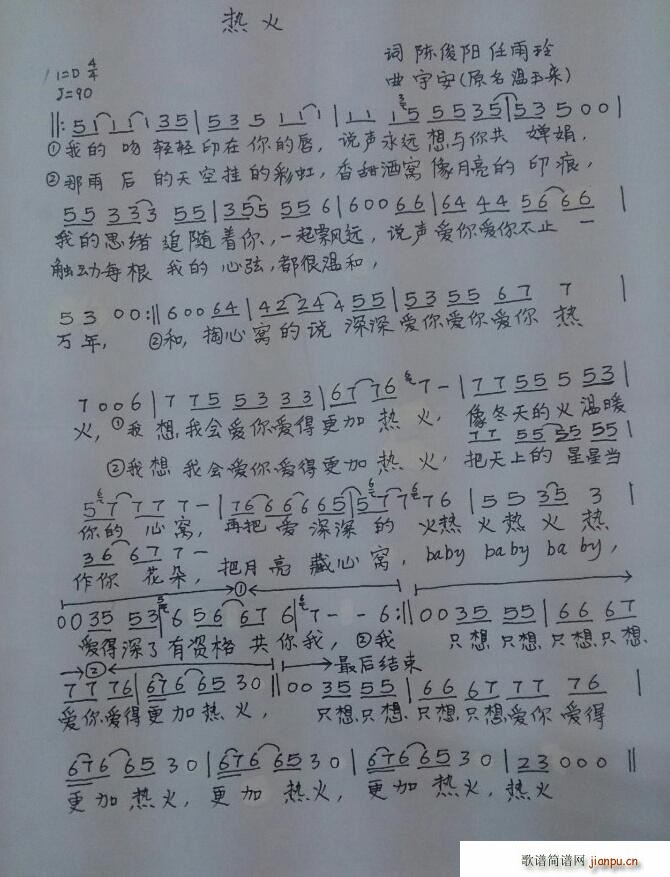 热火
词 陈俊阳 任雨玲
1=D 4/4
曲 宇安(原名温玉来)
J=90
||: 5 1 1 1 1 3 5 | 5 3 5 1 1 1 | 1 1 1 5 5 5 3 5 | 5 3 5 0 0 |
①我的 吻 轻轻印在你的唇, 说声永远想与你共 婵娟,
②那雨 后 的天空挂的彩虹, 香甜酒窝像月亮的 印痕,
5 5 3 3 3 5 5 | 3 5 5 5 5 6 | 6 0 0 6 6 | 6 4 4 4 5 6 6 6 |
我的思绪 追随着你,一起飘风远, 说声爱你爱你不止 一
触动每根 我的 心弦,都很温和,
5 3 0 0 :|| 6 0 0 6 4 | 4 2 2 4 4 5 5 | 5 3 5 5 6 7 7 |
万年, ②和, 掏心窝的说 深深爱你爱你爱你 热
7 0 0 6 | 7 7 5 5 3 3 3 | 6 7 7 6 6 7 - | 7 7 5 5 5 5 3 |
火,①我 想,我会爱你爱得更加 热 火, 像冬天的火温暖
7 7 5 5 3 5 5 5
②我想 我会爱你爱得更加 热 火, 把天上的 星星当
5 6 7 7 7 7 - | 7 6 6 6 6 6 5 | 5 6 7 7 6 7 6 | 5 5 3 5 3 |
你的 心窝, 再把 爱 深深 的 火热 火热 火 热
3 6 6 7 7 -
作你 花朵, 把月亮 藏心窝, baby baby baby,
①
0 0 3 5 5 3 | 5 6 5 6 6 7 6 | 6 7 - - 6 :|| 0 0 3 5 5 5 | 6 6 6 7
爱得深了有资格 共你我, ②我 只想,只想,只想,只想,
② 最后结束
7 7 7 6 | 6 7 6 6 5 3 0 || 0 0 3 5 5 5 | 6 6 6 7 7 7 7 6 |
爱你爱得更加热火, 只想,只想,只想,只想,爱你 爱得
6 7 6 6 5 3 0 | 6 7 6 6 5 3 0 | 6 7 6 6 5 3 0 | 2 3 0 0 0 ||
更加 热火, 更加 热火, 更加 热火, 热火
歌谱简谱网 jianpu.cn